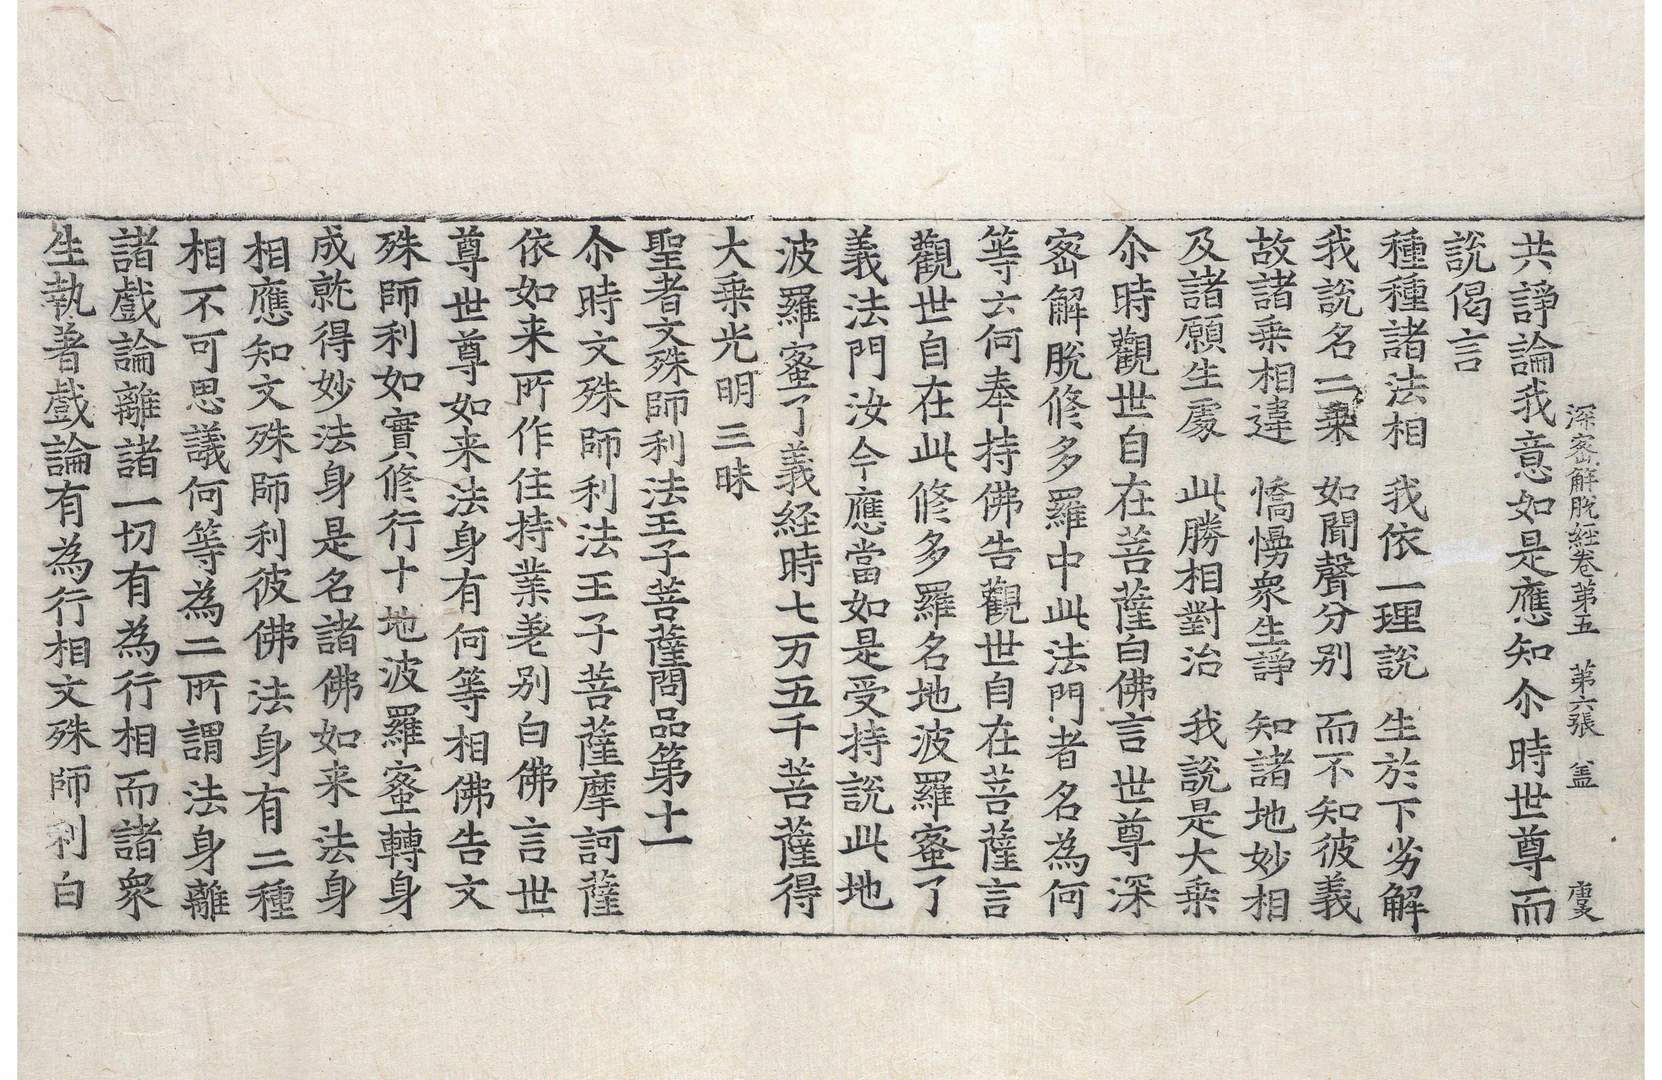 深密解脫經卷第五　第六張　盖
共諍論我意如是應知尒時世尊而
說偈言
種種諸法相　我依一理說　生於下劣解
我說名二乘　如聞聲分別　而不知彼義
故諸乘相違　憍慢衆生諍　知諸地妙相
及諸願生處　此勝相對治　我說是大乘
尒時觀世自在菩薩白佛言世尊深
密解脫修多羅中此法門者名為何
等云何奉持佛告觀世自在菩薩言
觀世自在此修多羅名地波羅蜜了
義法門汝今應當如是受持說此地
波羅蜜了義経時七万五千菩薩得
大乘光明三昧
聖者文殊師利法王子菩薩問品第十一
尒時文殊師利法王子菩薩摩訶薩
依如来所作住持業差別白佛言世
尊世尊如来法身有何等相佛告文
殊師利如實修行十地波羅蜜轉身
成就得妙法身是名諸佛如来法身
相應知文殊師利彼佛法身有二種
相不可思議何等為二所謂法身離
諸戲論離諸一切有為行相而諸衆
生執著戲論有為行相文殊師利白